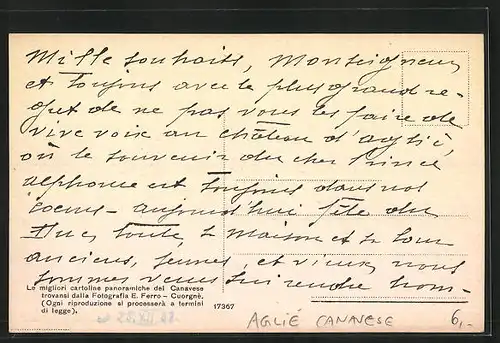 Mille souhaits, Monseigneur
et toujours avec le plus grand re-
gret de ne pas vous les faire de
vive voix au château d'Aglié,
où le souvenir du cher Prince
Alphonse est toujours dans nos
coeurs - aujourd'hui fête du
Duc, toute la maison et la Cour
anciens, jeunes, et vieux nous
sommes venus lui rendre hom-
Le migliori cartoline panoramiche del Canavese
trovansi dalla Fotografia E. Ferro - Cuorgnè.
(Ogni riproduzione si processerà a termini
di legge).
17367
AGLIÉ CANAVESE 6,-